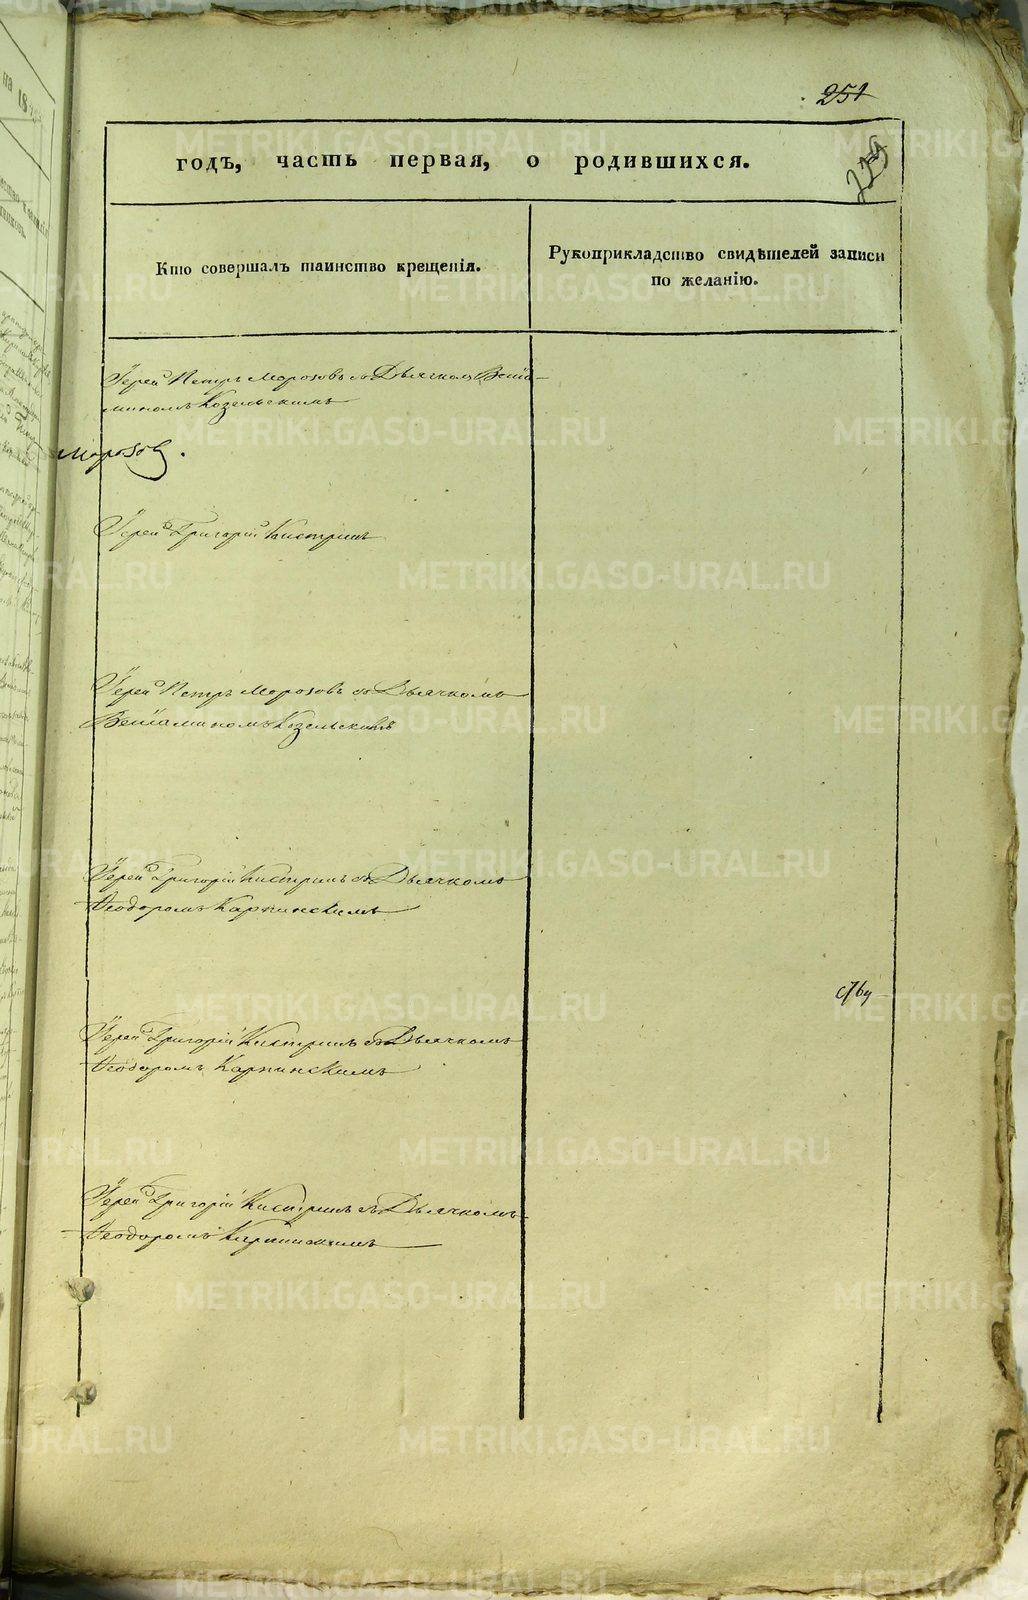 251
229
годъ, часть первая, о родившихся.
Кто совершалъ таинство крещенія.
Рукоприкладство свидѣтелей записи
по желанію.
Іерей Петръ Морозовъ съ Дьячкомъ Венїа-
миномъ Козельскимъ
Морозов.
Іерей Григорій Кистринъ
Іерей Петръ Морозовъ съ Дьячкомъ
Венїаминомъ Козельскимъ
Іерей Григорій Кистринъ съ Дьячкомъ
Ѳеодоромъ Карпинскимъ
Іерей Григорій Кистринъ съ Дьячкомъ
Ѳеодоромъ Карпинскимъ
Іерей Григорій Кистринъ съ Дьячкомъ
Ѳеодоромъ Карпинскимъ
METRIKI.GASO-URAL.RU